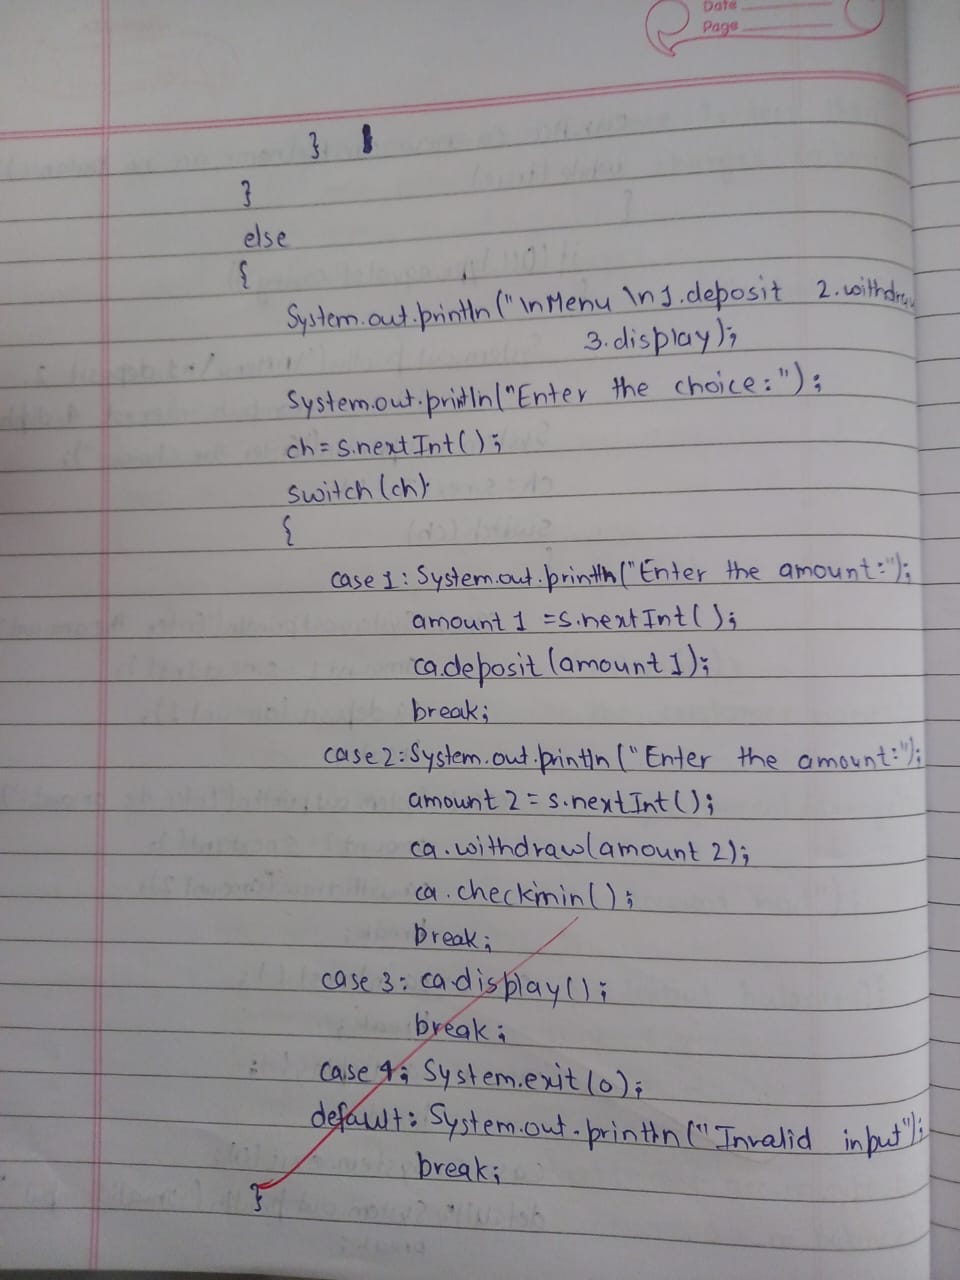 Date
Page
}
}
else
{
System.out.println("\nMenu \n1.deposit 2.withdraw
3.display);
System.out.println("Enter the choice:");
ch=s.nextInt();
switch(ch)
{
case 1: System.out.println("Enter the amount:");
amount 1 =s.nextInt();
ca.deposit(amount 1);
break;
case 2:System.out.println("Enter the amount:");
amount 2 = s.nextInt();
ca.withdraw(amount 2);
ca.checkmin();
break;
case 3: ca.display();
break;
case 4; System.exit(0);
default: System.out.println("Invalid input");
break;
}